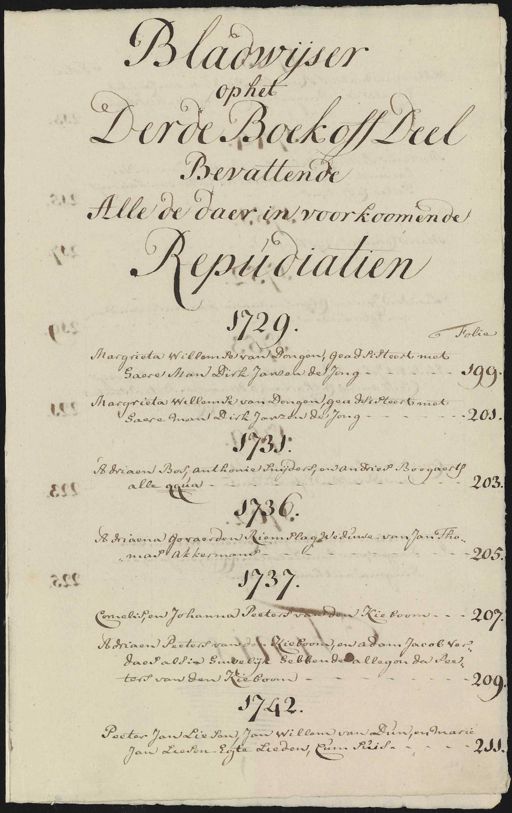 Bladwijser
op het
Derde Boek off Deel
Bevattende
Alle de daer in voorkoomende
Repudiatien
1729.
Folio
Margrieta Willemse van Dongen, geadsisteert met
haere Man Dirk Janson de Jong - - - 199.
Margrieta Willemse van Dongen, geadsisteert met
haere man Dirk Janzon de Jong - - - 201.
1731.
Adriaen Bos, anthonie Snijders, en andries Boogaerts
alle qqua - - - 203.
1736.
Adriaena Govaerden Riemslag Weduwe van Jan Tho-
mas Akkermans - - - 205.
1737.
Cornelis, en Johanna Peeters van den Kieboom - - - 207.
Adriaen Peeters van den Kieboom, en adam Jacob Ver-
daes als in huwelijk hebbende allegonda Pee-
ters van den Kieboom - - - 209.
1742.
Peeter Jan Liesen, Jan Willem van Dun, en Marie
Jan Liesen Egte Lieden, Cum suis - - - 211.